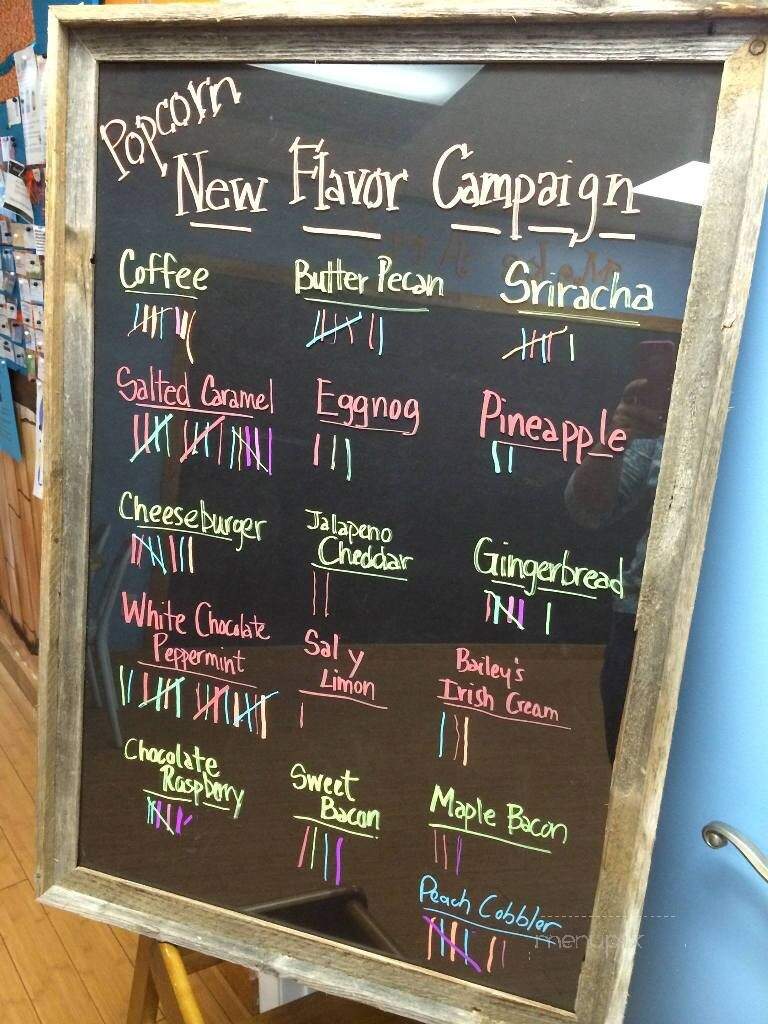 Popcorn
New Flavor Campaign
Coffee
Butter Pecan
Sriracha
Salted Caramel
Eggnog
Pineapple
Cheeseburger
Jalapeno
Cheddar
Gingerbread
White Chocolate
Peppermint
Sal y
Limon
Bailey's
Irish Cream
Chocolate
Raspberry
Sweet
Bacon
Maple Bacon
Peach Cobbler
menupix